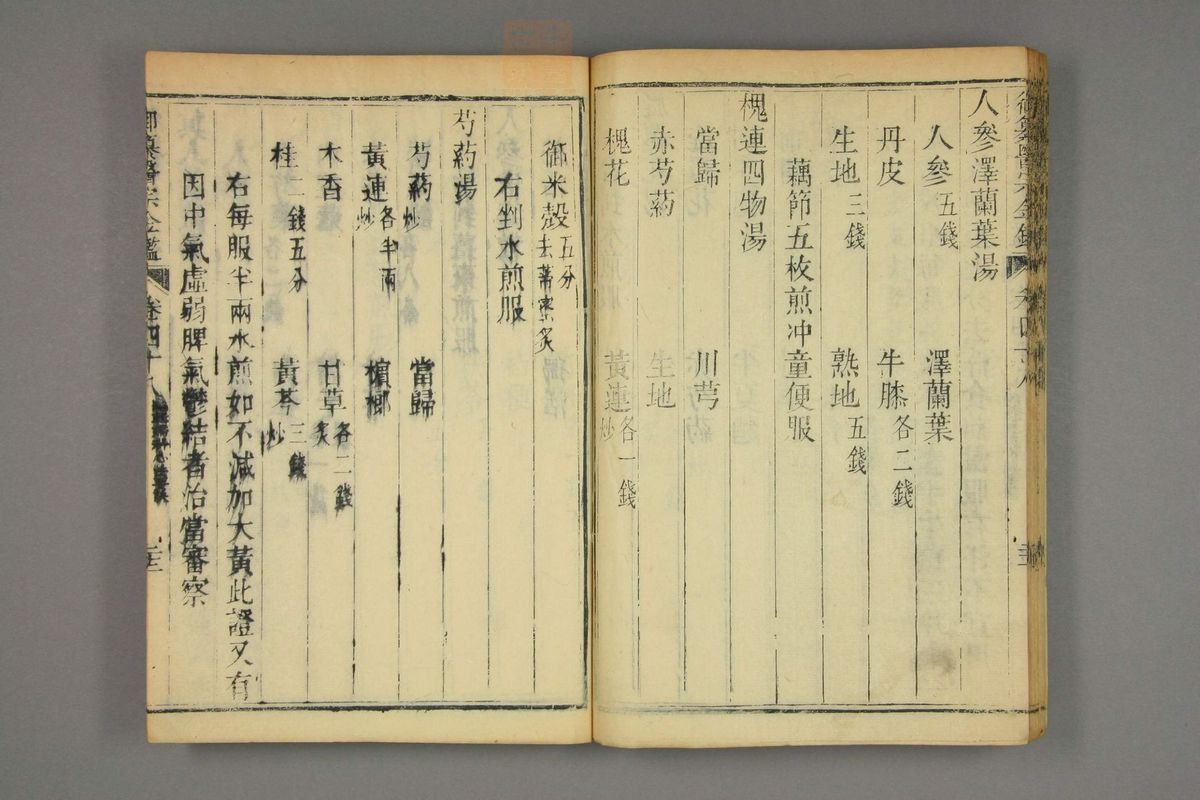 人參澤蘭葉湯
人參五錢 澤蘭葉
丹皮 牛膝各二錢
生地三錢 熟地五錢
藕節五枚煎冲童便服
槐連四物湯
當歸 川芎
赤芍藥 生地
槐花 黃連炒各一錢
御米殼五分去蒂蜜炙
右剉水煎服
芍藥湯
芍藥炒 當歸
黃連炒各半兩 檳榔
木香 甘草炙各二錢
桂二錢五分 黃芩炒三錢
右每服半兩水煎如不減加大黃此證又有
因中氣虛弱脾氣鬱結者治當審察
御纂醫宗金鑑 卷四十八